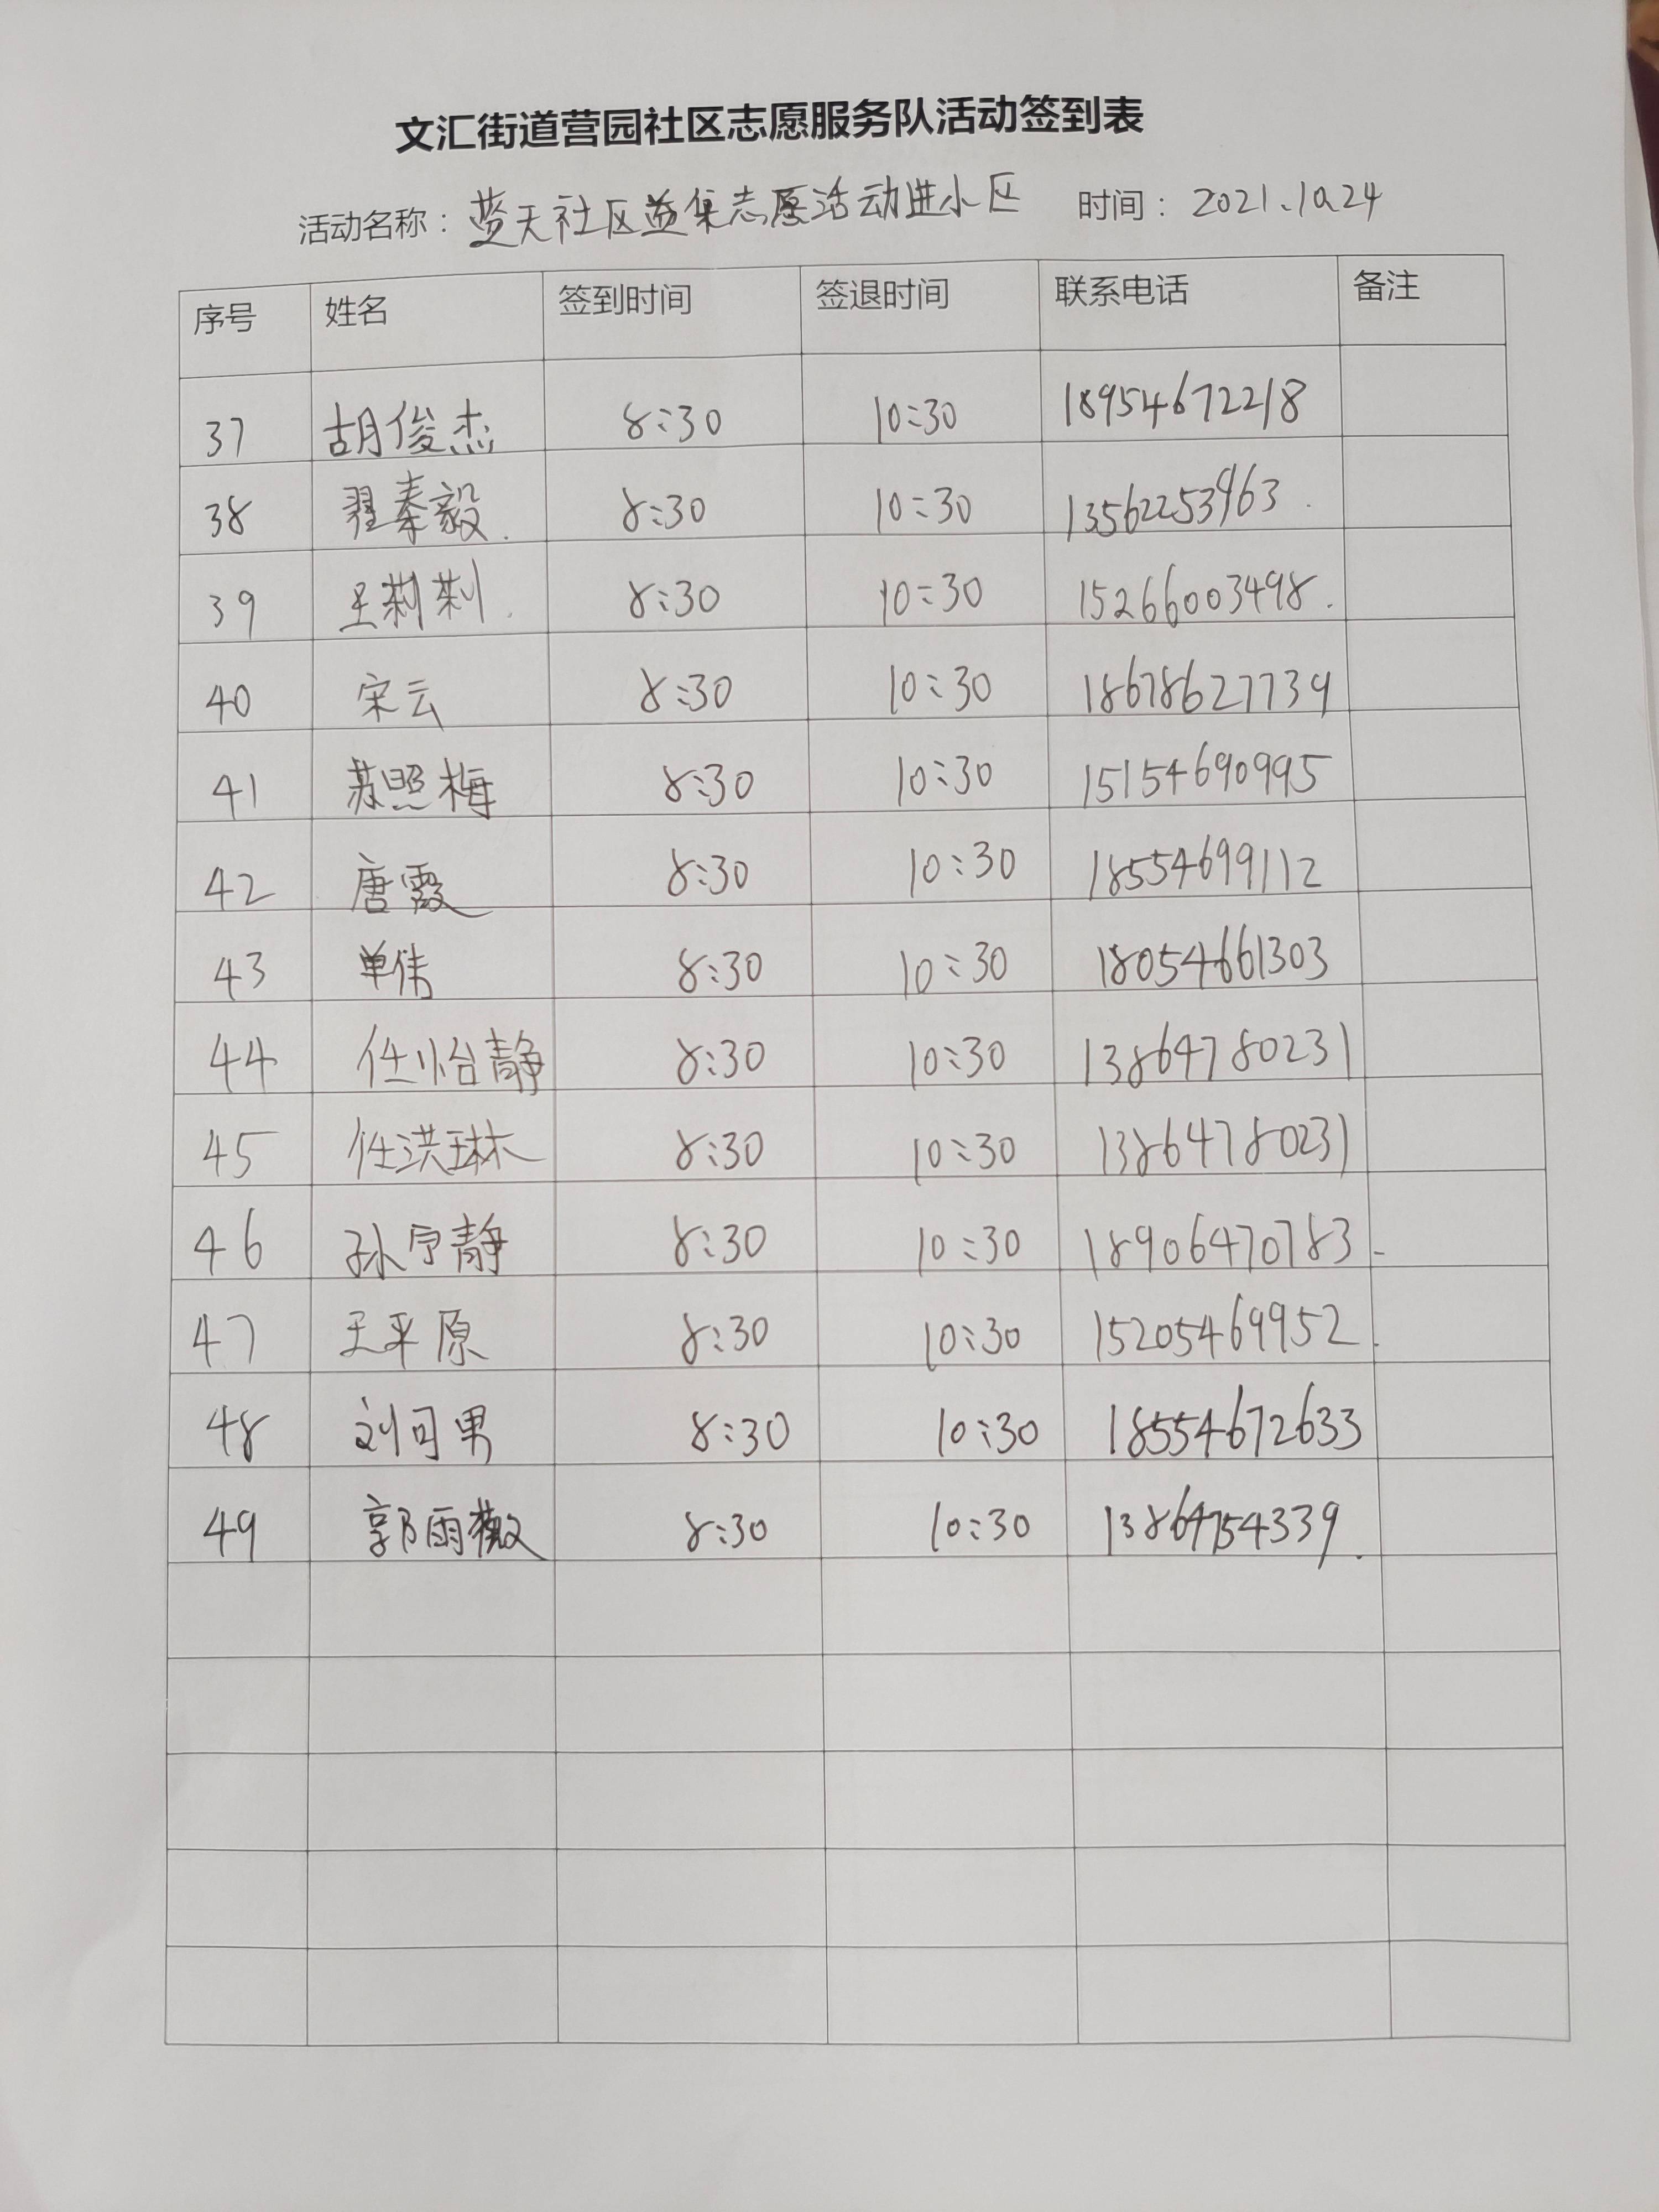 文汇街道营园社区志愿服务队活动签到表
活动名称：蓝天社区益集志愿活动进小区 时间：2021.10.24
序号 姓名 签到时间 签退时间 联系电话 备注
37 胡俊杰 8:30 10:30 18954672218
38 翟秦毅. 8:30 10:30 13562253963.
39 王莉莉. 8:30 10:30 15266003498.
40 宋云 8:30 10:30 18678627739
41 苏照梅 8:30 10:30 15154690995
42 唐霞 8:30 10:30 18554699112
43 单伟 8:30 10:30 18054661303
44 任怡静 8:30 10:30 13864780231
45 任洪琳 8:30 10:30 13864780231
46 孙宁静 8:30 10:30 18906470783
47 王平原 8:30 10:30 15205469952.
48 刘可男 8:30 10:30 18554672633
49 郭雨薇 8:30 10:30 13864754339.